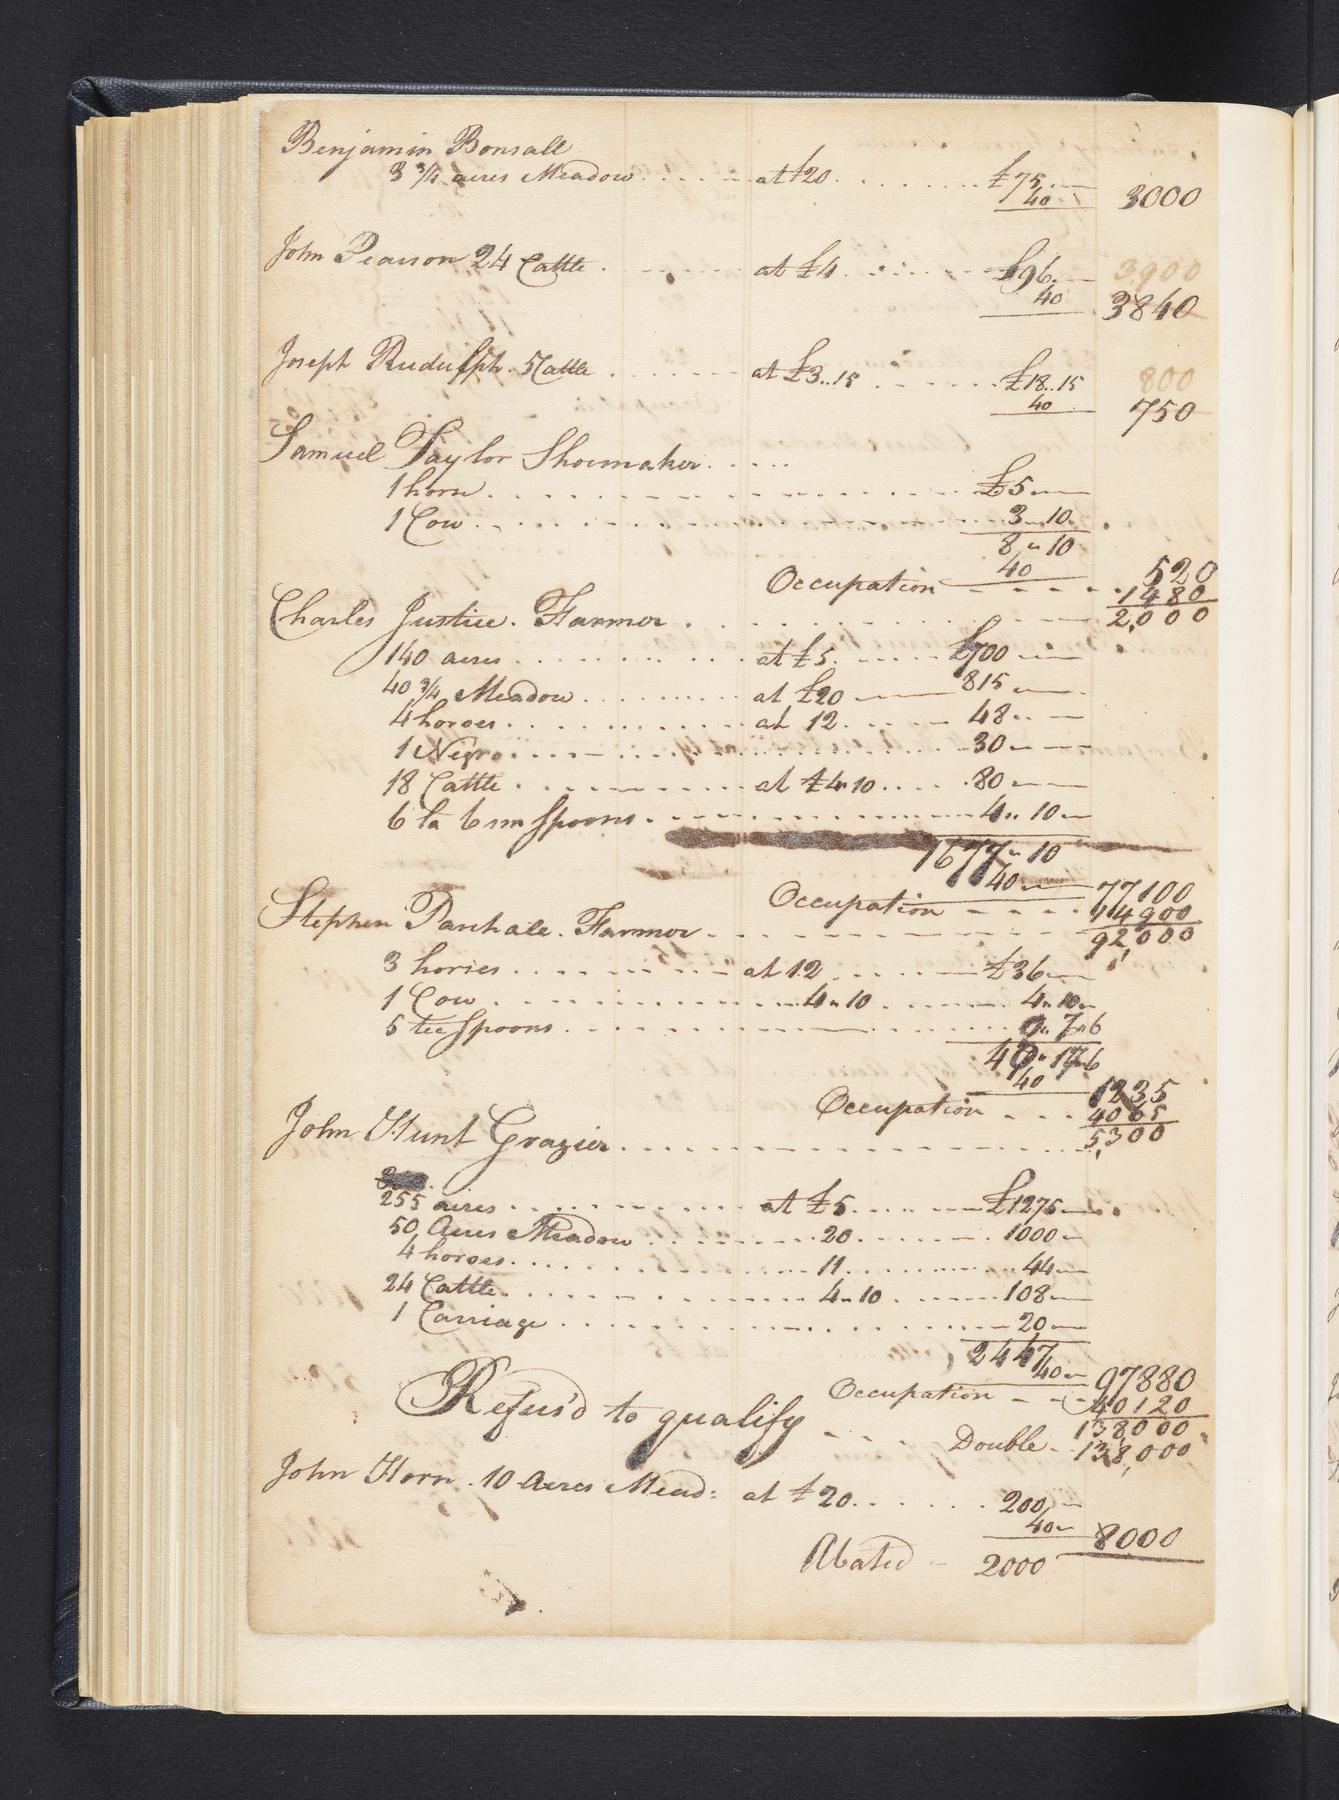 Benjamin Bonsall
3 3/4 acres Meadow . . . . . at £20 . . . . . . £75. —
40 3000
John Pearson 24 Cattle . . . . . . at £4 . . . . . £96. — 3900
40 3840
Joseph Rudulph. 5 Cattle . . . . . . at £3..15 . . . . . £18..15 800
40 750
Samuel Taylor Shoemaker . . . .
1 horse . . . . . . £5 —
1 Cow . . . . . . 3 " 10
8 " 10
40 520
Occupation - - - - 1480
Charles Justice. Farmer . . . . . . 2,000
140 acres . . . . . . at £5 . . . . . £700 —
40 3/4 Meadow . . . . . . at £20 — 815 —
4 horses . . . . . . at 12 . . . . . 48 .. —
1 Negro . . . . . . 30 —
18 Cattle . . . . . . at £4 " 10 . . . . 80 —
6 La 6 sm Spoons . . . . . . 4 .. 10 —
1677 " 10
40 — 77100
Occupation - - - - 14900
Stephen Paschale. Farmer . . . . . . 92,000
3 horses . . . . . . at 12 . . . . . £36 —
1 Cow . . . . . . 4 " 10 . . . . . 4 " 10 "
5 tee Spoons . . . . . . 0 " 7 " 6
40 " 17 " 6
40 1235
Occupation - - - - 4065
John Hunt Grazier . . . . . . 5,300
255 acres . . . . . . at £5 . . . . . £1275 —
50 Acres Meadow . . . . . . 20 . . . . . 1000 —
4 horses . . . . . . 11 . . . . . 44 —
24 Cattle . . . . . . 4 " 10 . . . . . 108 —
1 Carriage . . . . . . 20 —
2447
40 " 97880
Occupation - - - 40120
138000
Refus'd to qualify - - - - Double - 138,000
John Horn . 10 Acres Mead: at £20 . . . . . . 200 —
40 " 8000
Abated - 2000